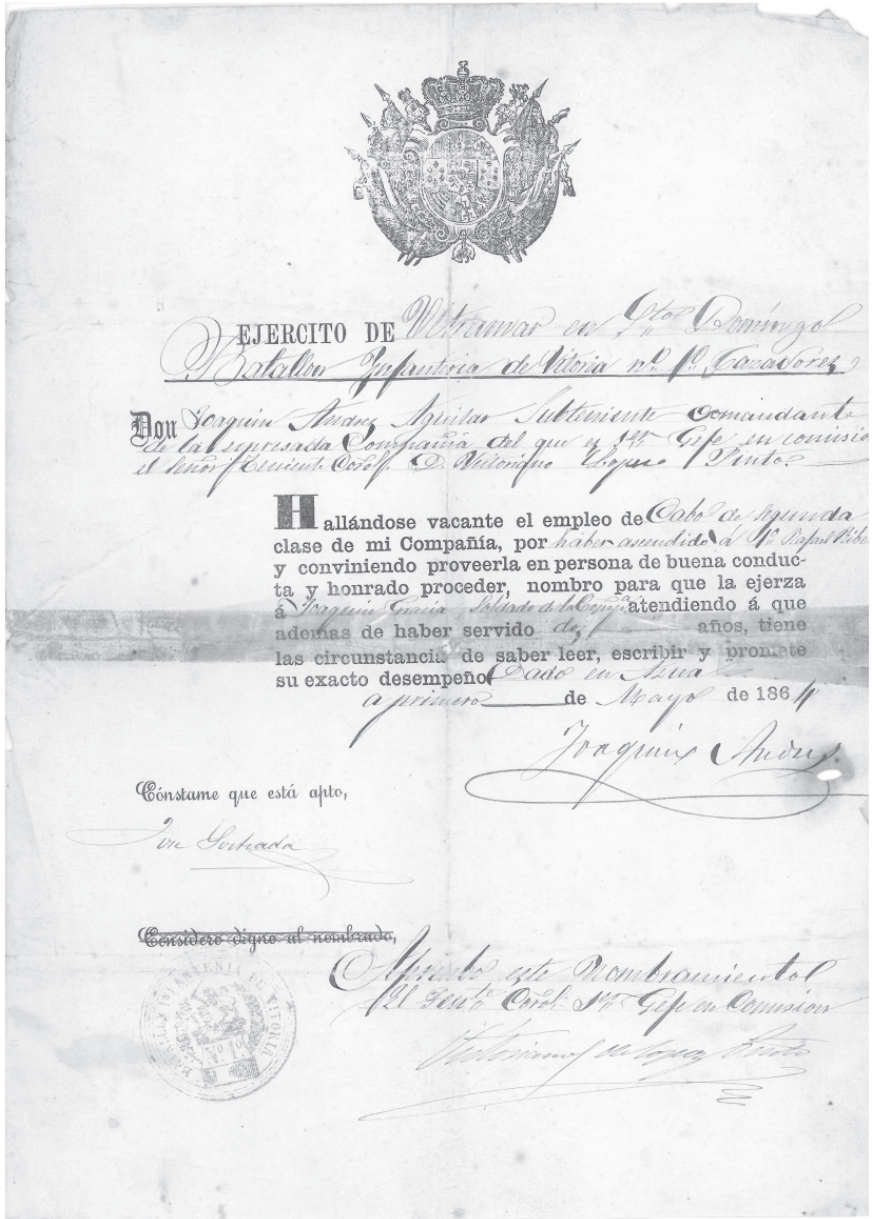 EJERCITO DE Ultramar en Sto Domingo
Batallon Infanteria de Vitoria nº 1º Cazadores
Don Joaquin Andres Aguilar Subteniente Comandante
de la espresada Compañia del que es 1er Gefe en comisio
el Señor Teniente Corol D. Victoriano Lopez Pinto.
Hallándose vacante el empleo de Cabo de segunda
clase de mi Compañía, por haber ascendido á 1º Rafael Ribe
y conviniendo proveerla en persona de buena conduc-
ta y honrado proceder, nombro para que la ejerza
á Joaquin Gracia Soldado de la atendiendo á que
ademas de haber servido años, tiene
las circunstancia de saber leer, escribir y promete
su exacto desempeño Dado en Azua
a primero de Mayo de 1864
Joaquin Andres
Cónstame que está apto,
Considero digno al nombrado,
Apruebo este Nombramiento
El Tente Corol 1er Gefe en Comision
Victoriano de Lopez Pinto
INFANTERIA DE VITORIA